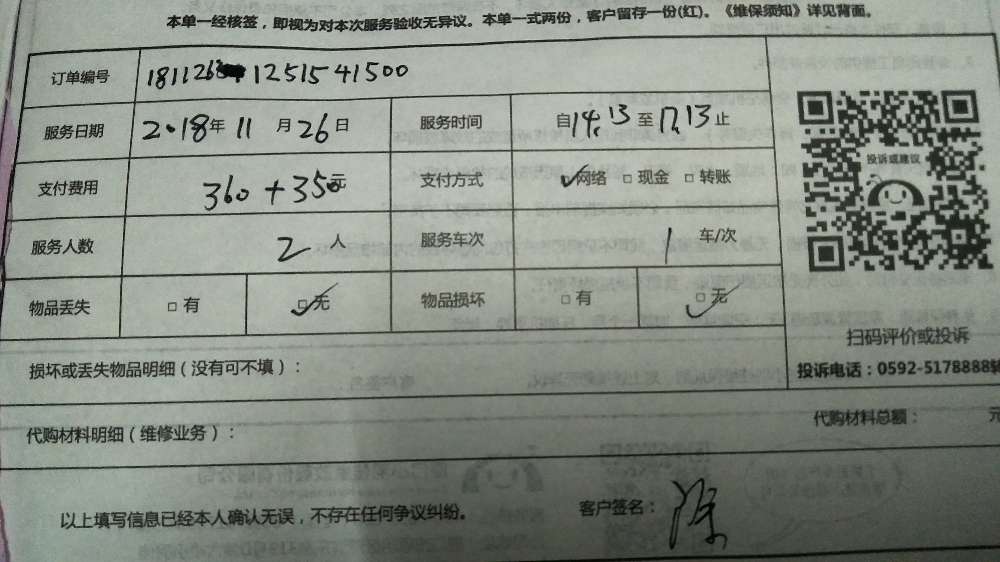 本单一经核签，即视为对本次服务验收无异议。本单一式两份，客户留存一份(红)。《维保须知》详见背面。
订单编号 12515541500
服务日期 2018年 11月 26日 服务时间 自14:13 至 17:13 止
支付费用 360 + 350元 支付方式 ☑网络 □现金 □转账
投诉或建议
服务人数 2 人 服务车次 1 车/次
物品丢失 □有 ☑无 物品损坏 □有 ☑无
扫码评价或投诉
损坏或丢失物品明细（没有可不填）：
投诉电话：0592-5178888转
代购材料明细（维修业务）：
代购材料总额： 元
以上填写信息已经本人确认无误，不存在任何争议纠纷。 客户签名：